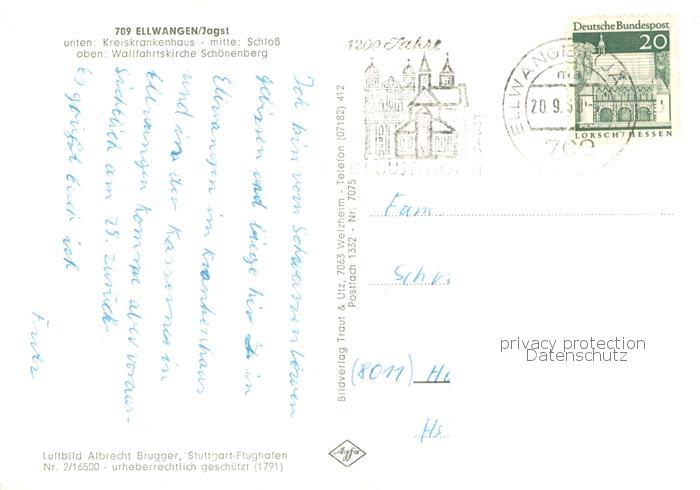 709 ELLWANGEN/Jagst
unten: Kreiskrankenhaus - mitte: Schloß
oben: Wallfahrtskirche Schönenberg
1200 Jahre
ELLWANGEN
ELLWANGEN/JA
20.9.6
709
Deutsche Bundespost
20
LORSCH/HESSEN
Ich bin vom Schwarzen Löwen
gebissen und liege hier in
Ellwangen im Krankenhaus
und in der Kaserne in
Ellwangen komme aber voraus-
sichtlich am 28. zurück.
Es grüßt Euch ich
Bildverlag Traut & Utz, 7063 Welzheim - Telefon (07182) 412
Postfach 1332 - Nr. 7075
Fam
Schr
(8011) Ho
Hs
privacy protection
Datenschutz
Luftbild Albrecht Brugger, Stuttgart-Flughafen
Nr. 2/16500 - urheberrechtlich geschützt (1791)
Agfa